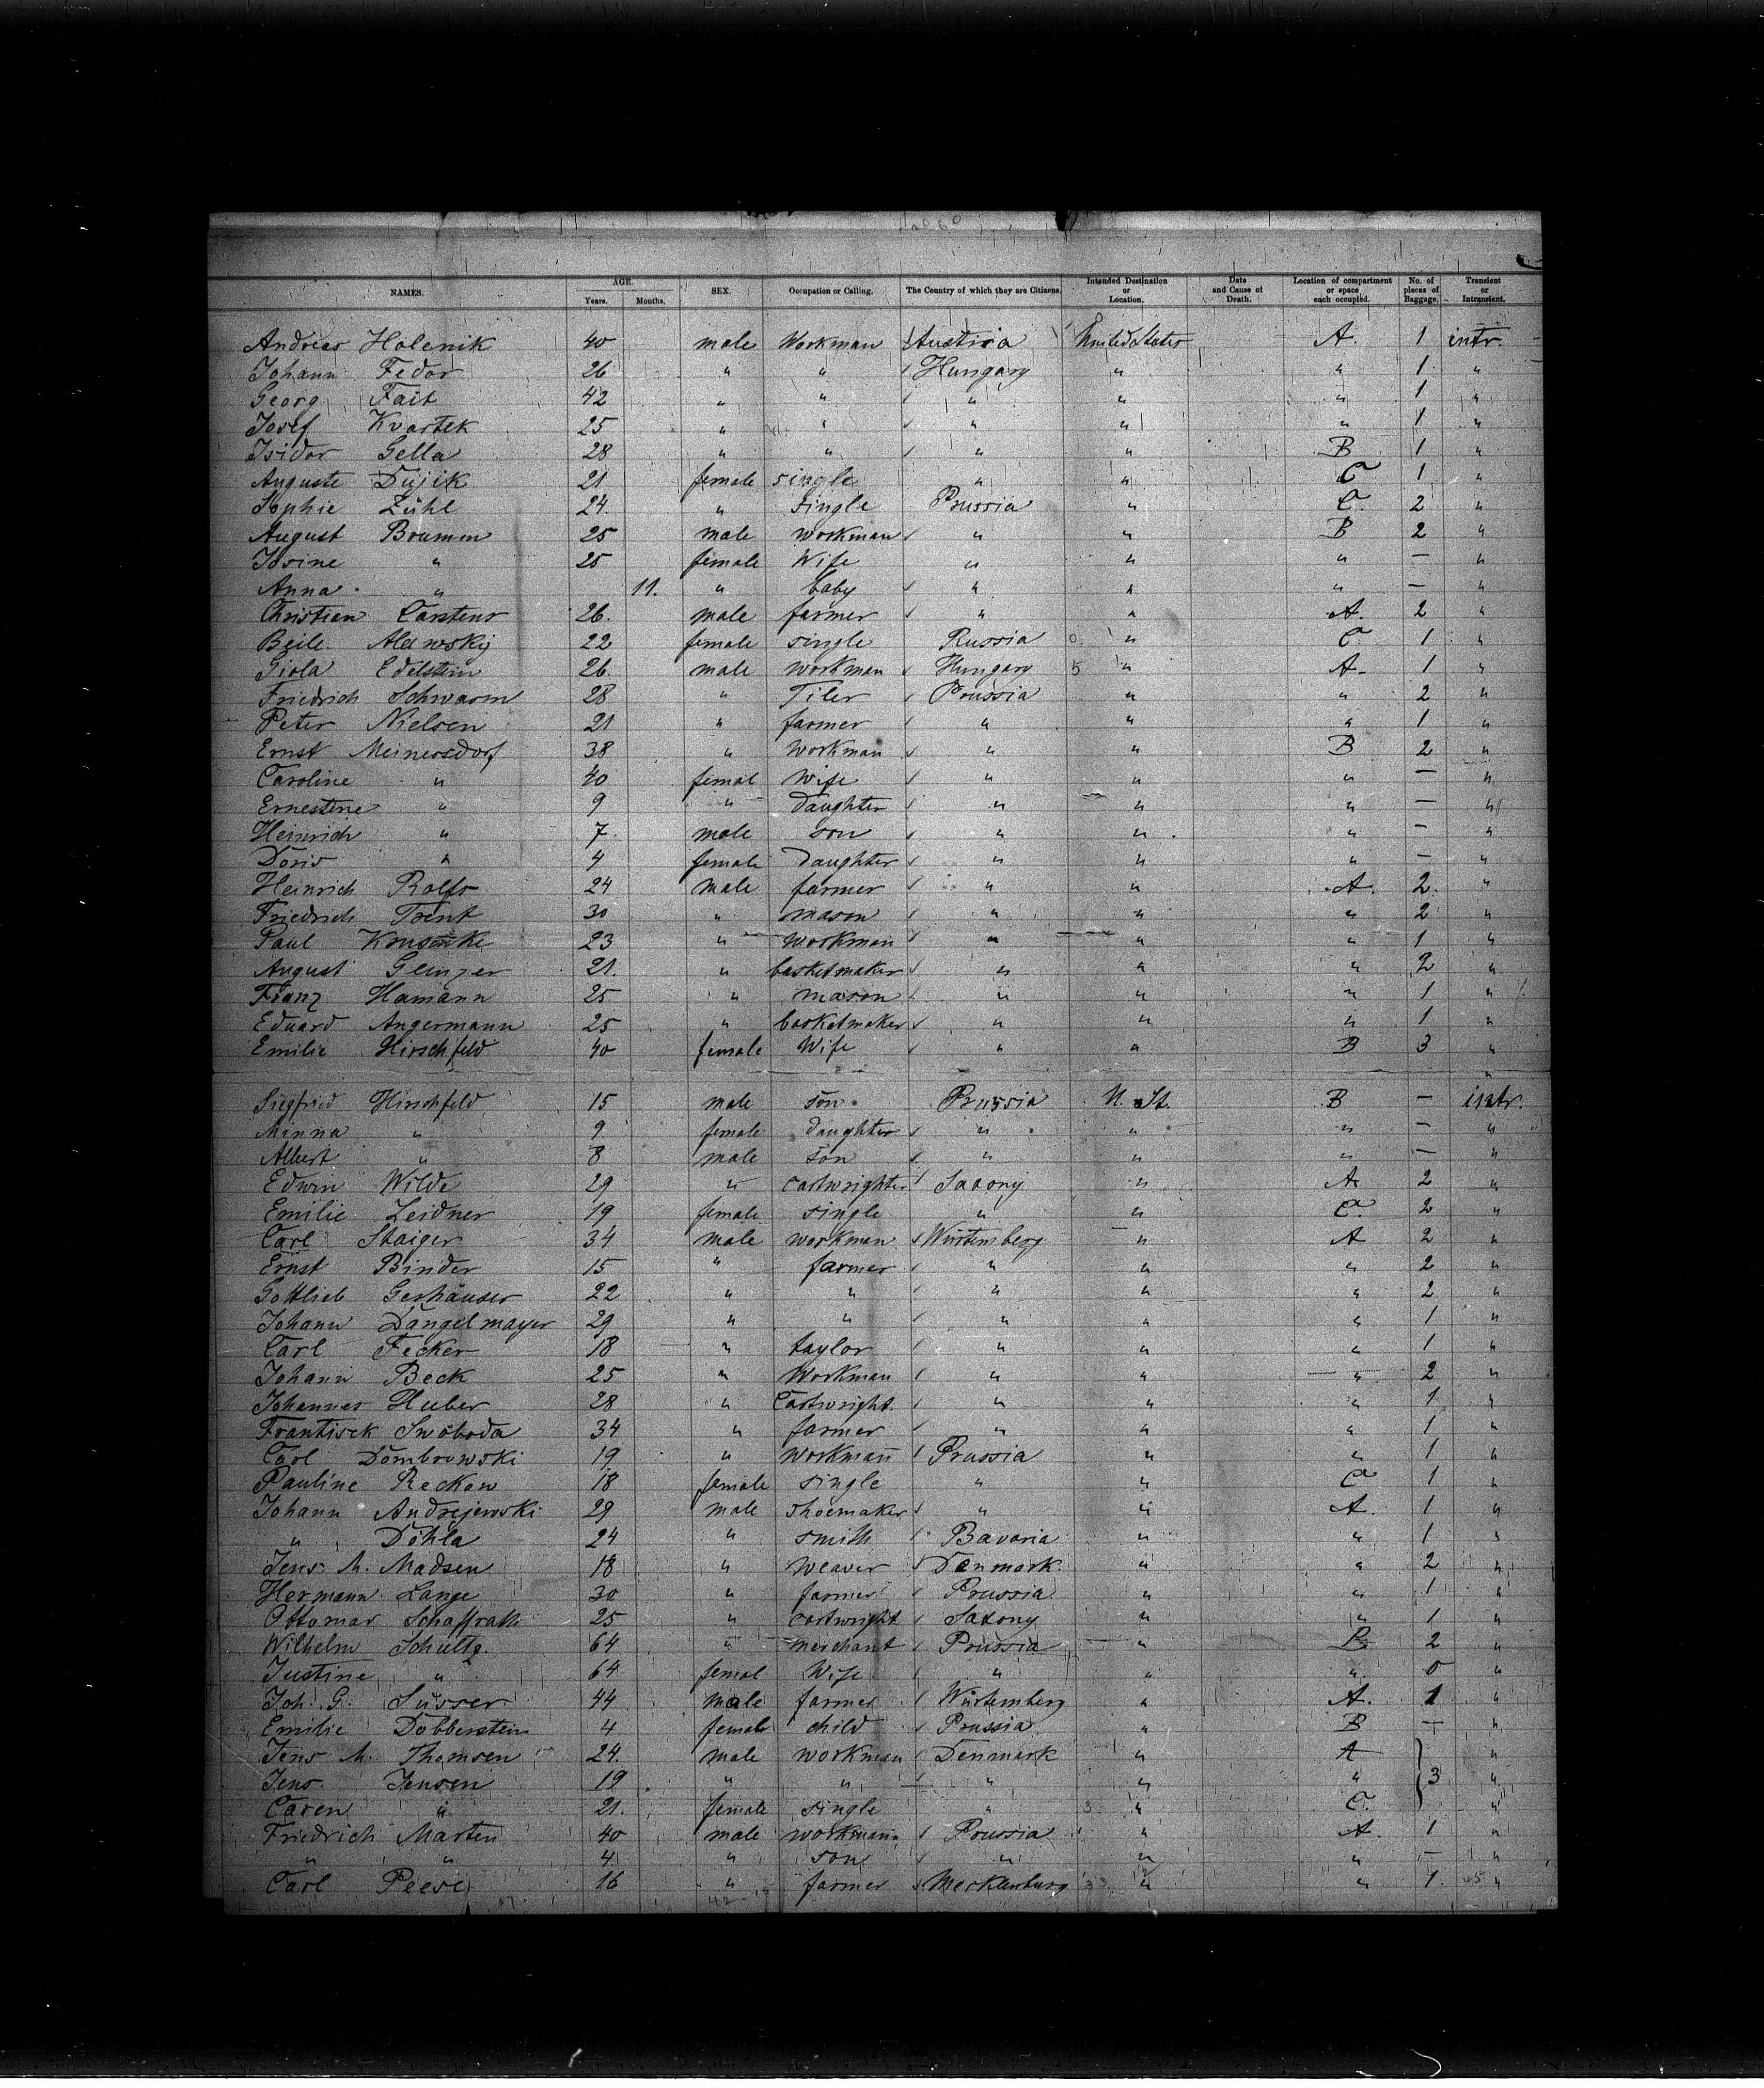 NAMES. AGE. Years. Months. SEX. Occupation or Calling. The Country of which they are Citizens. Intended Destination or Location. Date and Cause of Death. Location of compartment or space each occupied. No. of pieces of Baggage. Transient or Intransient.
Andreas Holenik 40 male Workman Austria United States A. 1 intr.
Johann Fedor 26 " " Hungary " " 1 "
Georg Fait 42 " " " " " 1 "
Josef Kvartek 25 " " " " " 1 "
Isidor Gella 28 " " " " B 1 "
Auguste Dujik 21 female single " " C 1 "
Sophie Zühl 24. " single Prussia " C. 2 "
August Brumm 25 male workman " " B 2 "
Josine " 25 female Wife " " " — "
Anna " 11. " baby " " " — "
Christian Carstens 26. male farmer " " A. 2 "
Beile 22 female single Russia " C 1 "
Giola Edelstein 26 male workman Hungary " A. 1 "
Friedrich Schwarm 28 " Tiler Prussia " " 2 "
Peter Nielsen 21 " farmer " " " 1 "
Ernst Meinersdorf 38 " Workman " " B 2 "
Caroline " 40 femal wife " " " — "
Ernestine " 9 " daughter " " " — "
Heinrich " 7. male son " " " — "
Doris " 4 female daughter " " " — "
Heinrich Rolfs 24 male farmer " " A. 2 "
Friedrich Trent 30 " mason " " " 2 "
Paul 23 " workman " " " 1 "
August 21. " basketmaker " " " 2 "
Franz Hamann 25 " mason " " " 1 "
Eduard Angermann 25 " basketmaker " " " 1 "
Emilie Hirschfeld 40 female Wife " " B 3 "
"
Siegfried Hirschfeld 15 male son Prussia U. St. B — intr.
Minna " 9 female daughter " " " — "
Albert " 8 male son " " " — "
Edwin Wilde 29 " cartwrighter Saxony " A 2 "
Emilie Leidner 19 female single " " C. 2 "
Carl Staiger 34 male workman Würtemberg " A 2 "
Ernst Binder 15 " farmer " " " 2 "
Gottlieb Gerhäuser 22 " " " " " 2 "
Johann Dangelmayer 29 " " " " " 1 "
Carl Fecker 18 " taylor " " " 1 "
Johann Beck 25 " Workman " " " 2 "
Johannes Huber 28 " Cartwright. " " " 1 "
Frantisek Swoboda 34 " farmer " " " 1 "
Carl Dombrowski 19 " workman Prussia " " 1 "
Pauline Reckow 18 female single " " C 1 "
Johann Andrejewski 29 male shoemaker " " A. 1 "
" Döhla 24 " smith Bavaria " " 1 "
Jens M. Madsen 18 " weaver Denmark. " " 2 "
Hermann Lange 30 " farmer Prussia " " 1 "
Ottomar Schaffrath 25 " cartwright Saxony " " 1 "
Wilhelm Schultz. 64 " merchant Prussia " B 2 "
Justine " 64 femal Wife " " " 0 "
Joh. G. Süsser 44 male farmer Würtemberg " A. 1 "
Emilie Dobberstein 4 female child Prussia " B — "
Jens M. Thomsen 24. male workman Denmark " A "
Jens Jensen 19 " " " " " 3 "
Caren " 21. female single " 3 " C. "
Friedrich Marten 40 male workmann Prussia " A. 1 "
" " 4 " son " " " — "
Carl Peese 16 " farmer Mecklenburg " " 1 "
42